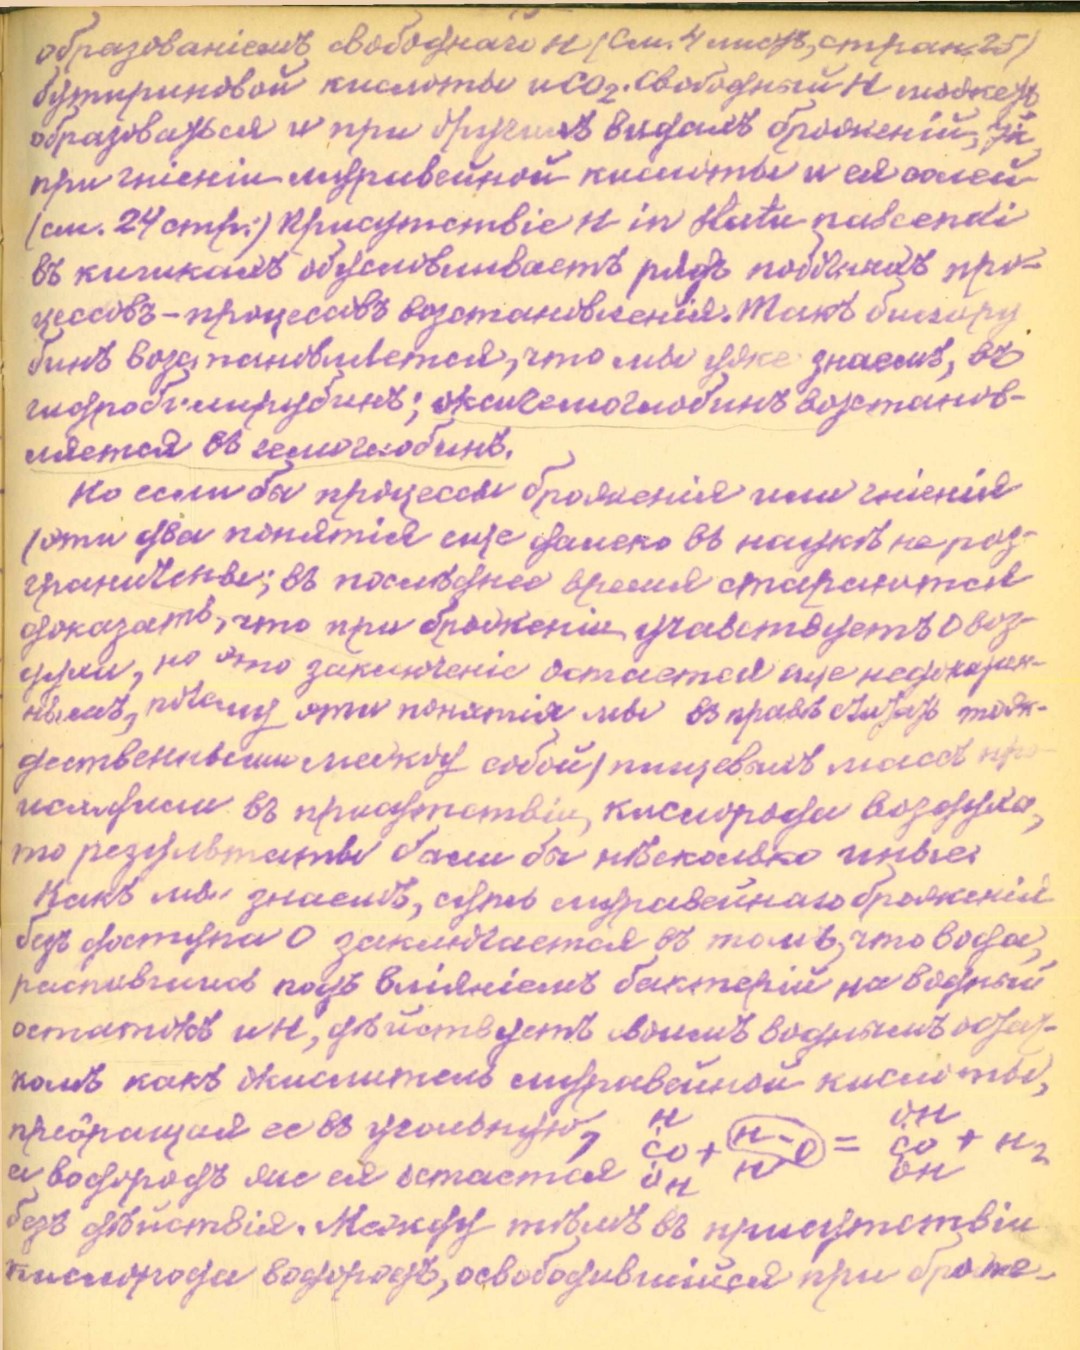 образованіемъ свободнаго H (см. 4 листъ, стран. 25)
бутириновой кислоты и CO₂. Свободный H можетъ
образоваться и при другихъ видахъ броженій,
при гніеніи муравейной кислоты и ея солей
(см. 24 стр.) Присутствіе H in statu nascendi
въ кишкахъ обусловливаетъ рядъ побочныхъ про-
цессовъ – процессовъ возстановленія. Такъ билиру
бинъ возстановляется, что мы уже знаемъ, въ
гидробилирубинъ; оксигемоглобинъ возстанов-
ляется въ гемоглобинъ.
Но если бы процессы броженія или гніенія
(эти два понятія еще далеко въ наукѣ не раз-
граничены; въ послѣднее время стараются
доказать, что при броженіи участвуетъ O воз-
духа, но это заключеніе остается еще недоказан-
нымъ, почему эти понятія мы въ правѣ считать тож-
дественными между собой) пищевыхъ массъ про
исходили въ присутствіи кислорода воздуха,
то результаты были бы нѣсколько иные.
Какъ мы знаемъ, суть муравейнаго броженія
безъ доступа O заключается въ томъ, что вода,
распавшись подъ вліяніемъ бактерій на водный
остатокъ и H, дѣйствуетъ своимъ воднымъ остат-
комъ какъ окислитель муравейной кислоты,
превращая ее въ угольную,
H CO OH + H-O H = OH CO OH + H₂
а водородъ же ея остается
безъ дѣйствія. Между тѣмъ въ присутствіи
кислорода водородъ, освободившійся при броже-